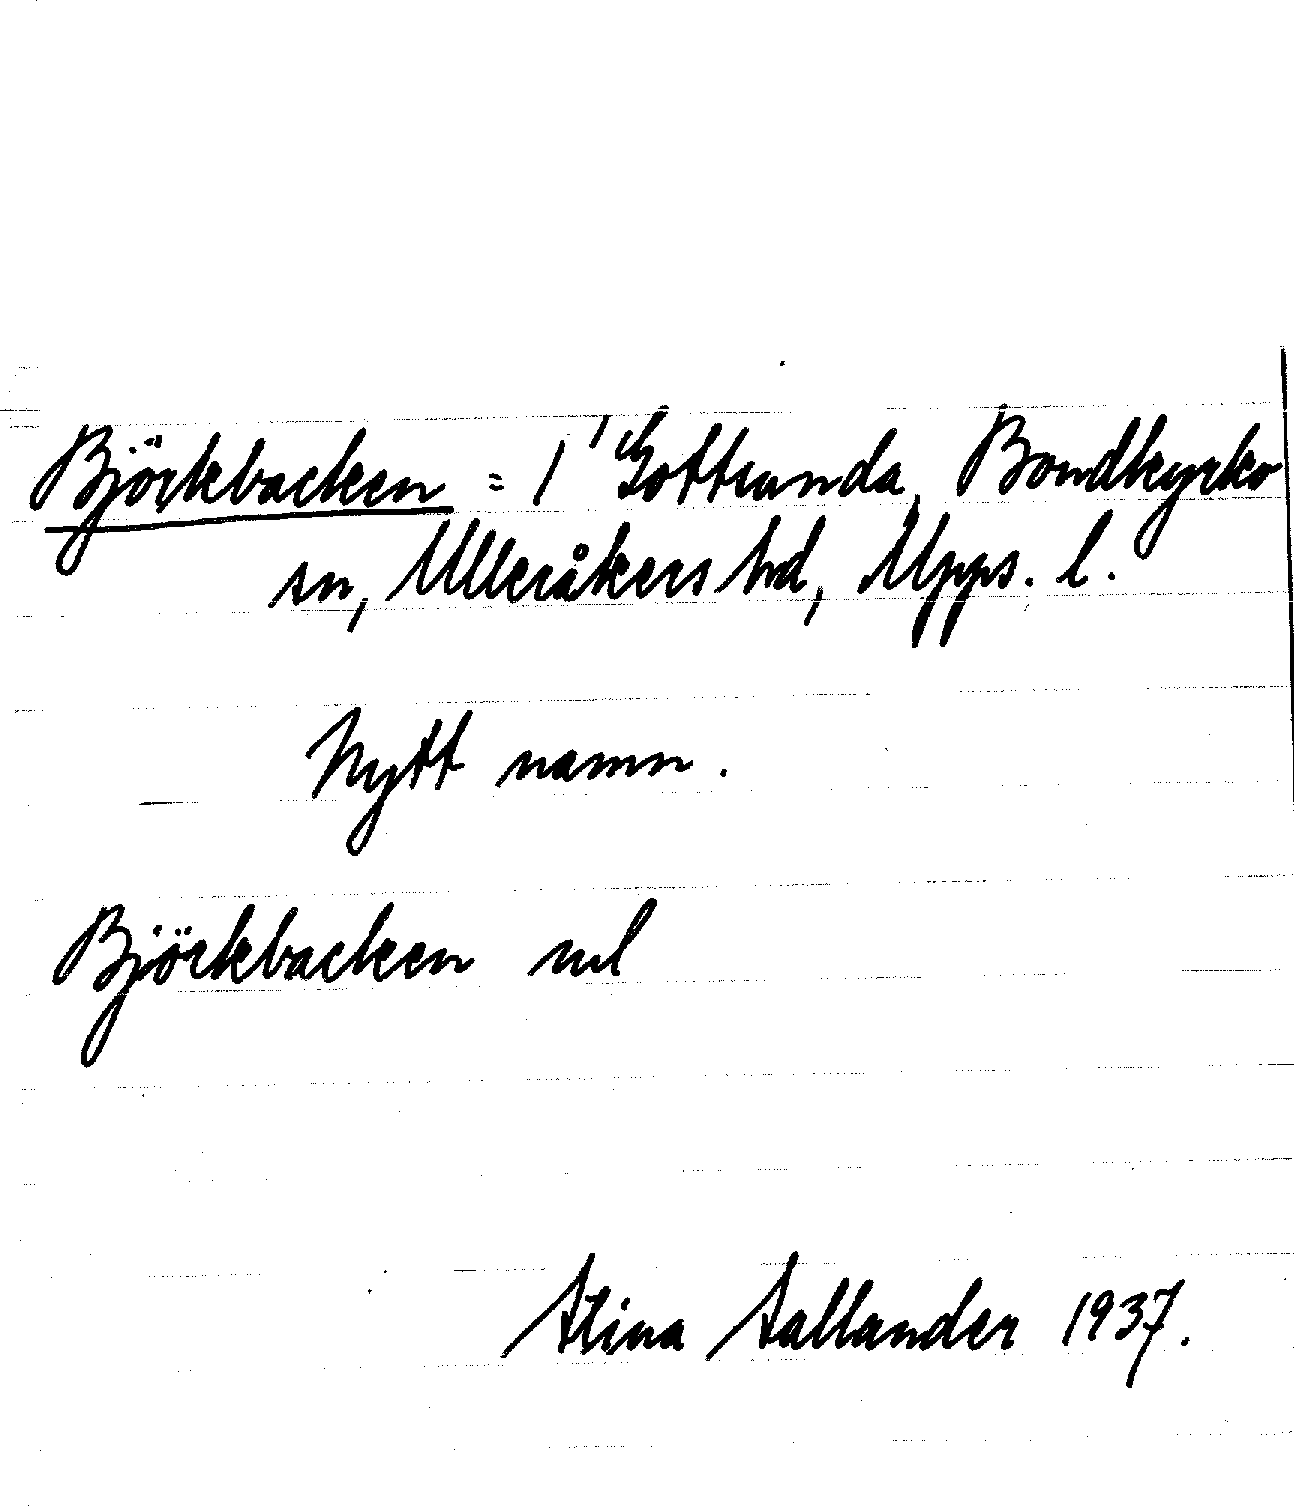 Björkbacken = 1 Gottsunda, Bondkyrko
sn, Ulleråkers hd, Upps. l.
Nytt namn.
Björkbacken ml
Stina Sallander 1937.